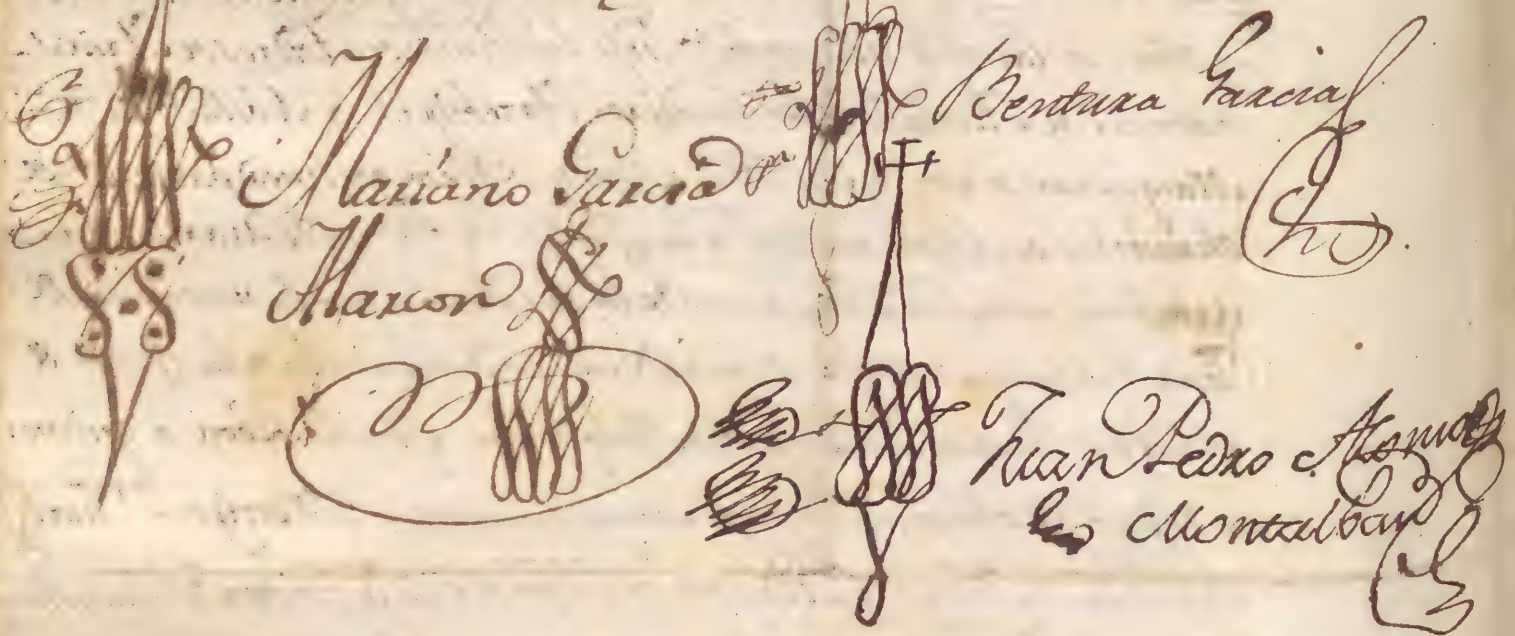 Mariano Garcia
Alarcon
Bentura Garcia
Juan Pedro Alonso
Montalban